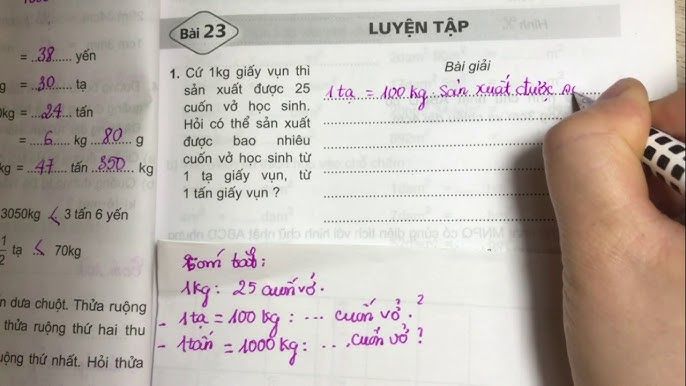 = ..38.... yến
g = ...30..... tạ
0kg = ...24... tấn
= ....6.... kg ..80.. g
kg = ..47... tấn 350 kg
3050kg < 3 tấn 6 yến
1/2 tạ < 70kg
n dưa chuột. Thửa ruộng
thửa ruộng thứ hai thu
uộng thứ nhất. Hỏi thửa
Bài 23
LUYỆN TẬP
1. Cứ 1kg giấy vụn thì
sản xuất được 25
cuốn vở học sinh.
Hỏi có thể sản xuất
được bao nhiêu
cuốn vở học sinh từ
1 tạ giấy vụn, từ
1 tấn giấy vụn ?
Bài giải
1 tạ = 100 kg sản xuất được
Tóm tắt:
1kg: 25 cuốn vở.
- 1 tạ = 100 kg : ... cuốn vở ?
- 1 tấn = 1000 kg : ... cuốn vở ?